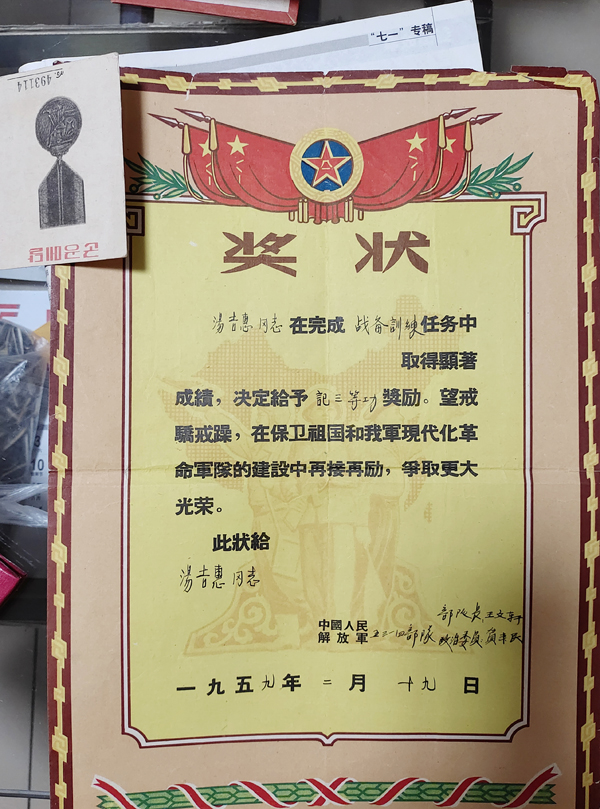 "七一"专稿
493114
군공메달
奖状
湯吉惠同志在完成战备訓練任务中
取得顯著
成績，决定給予記三等功奬励。望戒
驕戒躁，在保卫祖国和我軍現代化革
命軍隊的建設中再接再励，爭取更大
光荣。
此狀給
湯吉惠同志
中國人民
解放軍
部隊
部队長王文軒
政治委員
一九五九年二月十九日